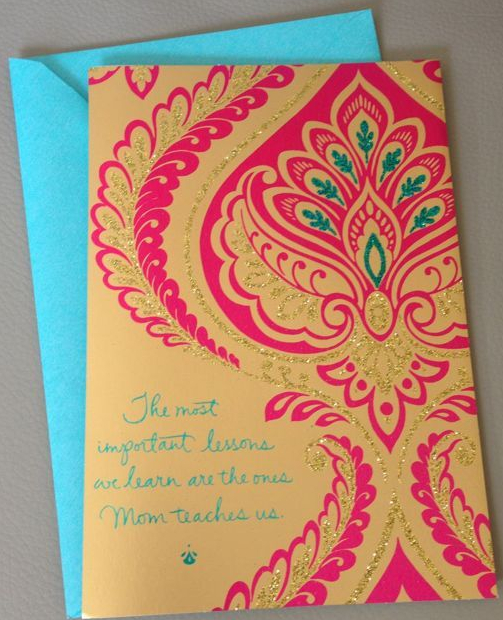 The most
important lessons
we learn are the ones
Mom teaches us.